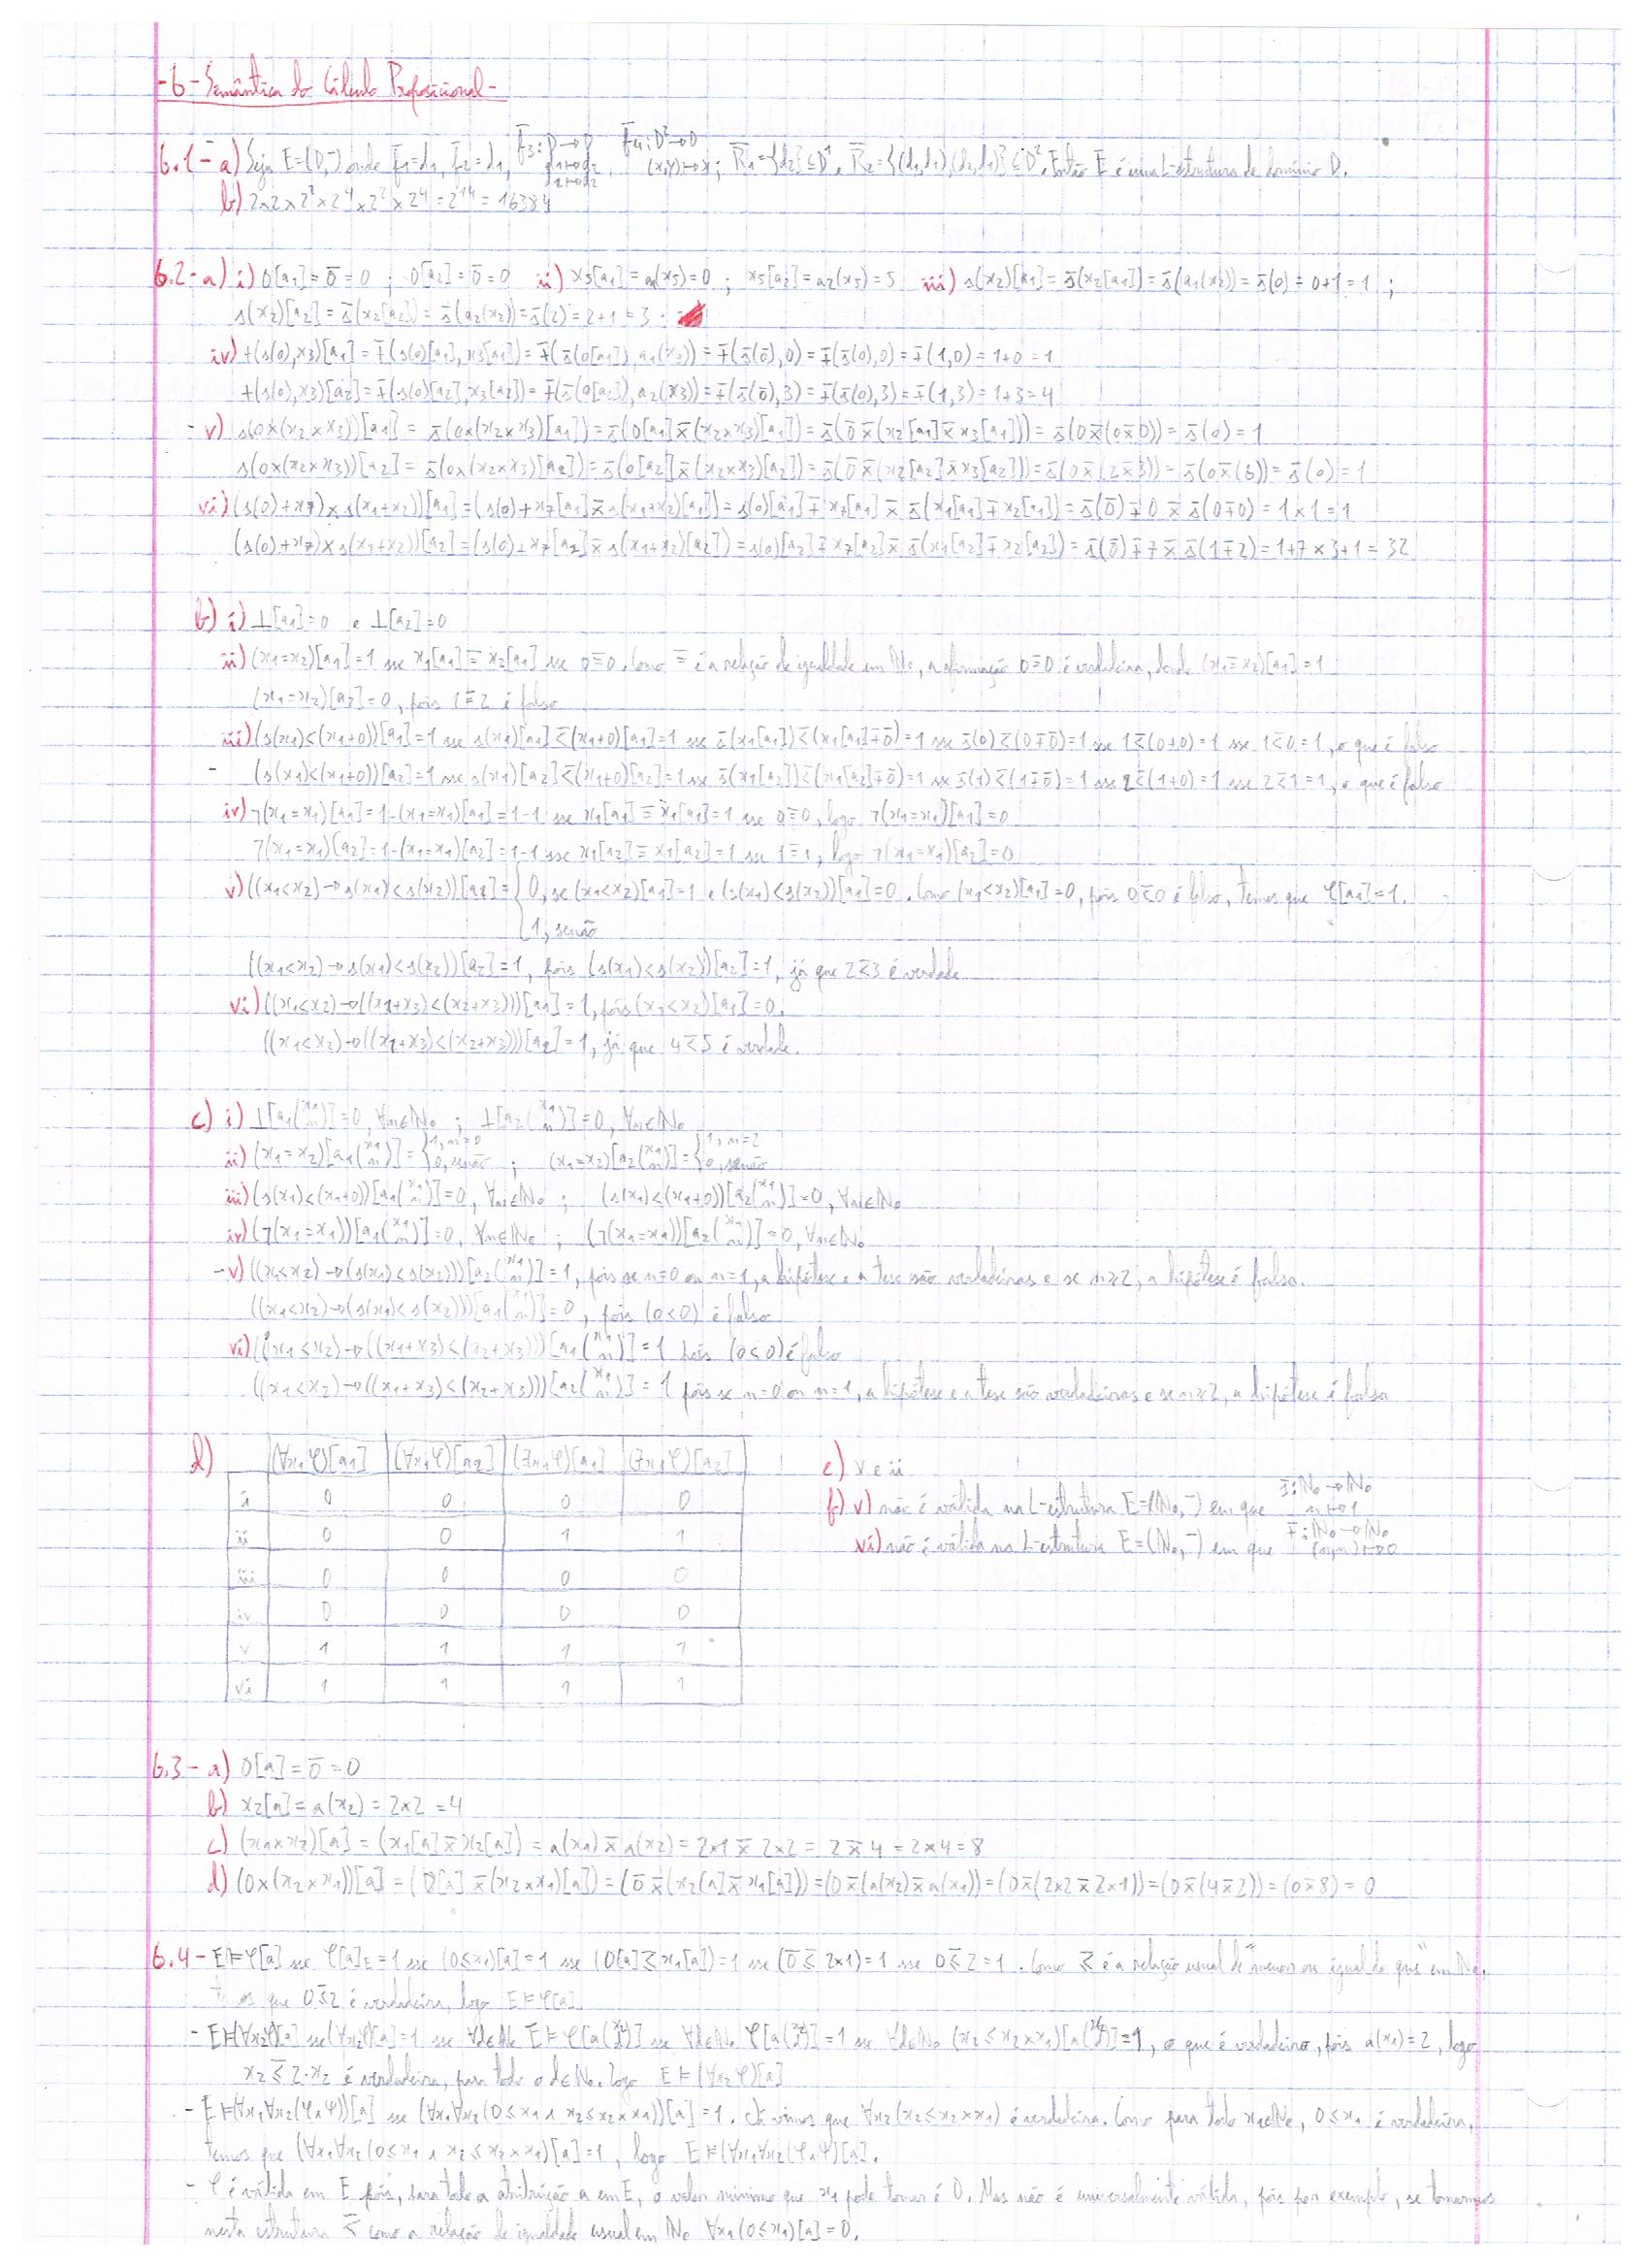 -6- Semântica do Cálculo Proposicional-
6.1- a) Seja E=(D,¯) onde f̄1=d1, f̄2=d1, f̄3: D→D d1↦d2 d2↦d2, f̄4: D²→D (x,y)↦x; R̄1={d2}⊆D¹, R̄2={(d1,d1),(d2,d1)}⊆D². Então E é uma L-estrutura de domínio D.
b) 2×2×2²×2⁴×2²×2⁴=2¹⁴=16384
6.2- a) i) 0[a1]=0̄=0 ; 0[a2]=0̄=0 ii) x5[a1]=a1(x5)=0 ; x5[a2]=a2(x5)=5 iii) s(x2)[a1]=s̄(x2[a1])=s̄(a1(x2))=s̄(0)=0+1=1 ;
s(x2)[a2]=s̄(x2[a2])=s̄(a2(x2))=s̄(2)=2+1=3.
iv) +(s(0),x3)[a1]=+̄(s(0)[a1],x3[a1])=+̄(s̄(0[a1]),a1(x3))=+̄(s̄(0̄),0)=+̄(s̄(0),0)=+̄(1,0)=1+0=1
+(s(0),x3)[a2]=+̄(s(0)[a2],x3[a2])=+̄(s̄(0[a2]),a2(x3))=+̄(s̄(0̄),3)=+̄(s̄(0),3)=+̄(1,3)=1+3=4
- v) s(0×(x2×x3))[a1]=s̄(0×(x2×x3)[a1])=s̄(0[a1]×̄(x2×x3)[a1])=s̄(0̄×̄(x2[a1]×̄x3[a1]))=s̄(0×̄(0×̄0))=s̄(0)=1
s(0×(x2×x3))[a2]=s̄(0×(x2×x3)[a2])=s̄(0[a2]×̄(x2×x3)[a2])=s̄(0̄×̄(x2[a2]×̄x3[a2]))=s̄(0×̄(2×̄3))=s̄(0×̄(6))=s̄(0)=1
vi) (s(0)+x7)×s(x1+x2))[a1]=(s(0)+x7[a1]×̄s(x1+x2)[a1])=s(0)[a1]+̄x7[a1]×̄s̄(x1[a1]+̄x2[a1])=s̄(0̄)+̄0×̄s̄(0+̄0)=1×1=1
(s(0)+x7)×s(x1+x2))[a2]=(s(0)+x7[a2]×̄s(x1+x2)[a2])=s(0)[a2]+̄x7[a2]×̄s̄(x1[a2]+̄x2[a2])=s̄(0̄)+̄7×̄s̄(1+̄2)=1+7×3+1=32
b) i) ⊥[a1]=0 e ⊥[a2]=0
ii) (x1=x2)[a1]=1 sse x1[a1]=̄x2[a1] sse 0=̄0. Como =̄ é a relação de igualdade em ℕ0, a afirmação 0=̄0 é verdadeira, donde (x1=x2)[a1]=1
(x1=x2)[a2]=0, pois 1=̄2 é falso
iii) (s(x1)<(x1+0))[a1]=1 sse s(x1)[a1]<̄(x1+0)[a1]=1 sse s̄(x1[a1])<̄(x1[a1]+̄0̄)=1 sse s̄(0)<̄(0+̄0̄)=1 sse 1<̄(0+0)=1 sse 1<̄0=1, o que é falso
- (s(x1)<(x1+0))[a2]=1 sse s(x1)[a2]<̄(x1+0)[a2]=1 sse s̄(x1[a2])<̄(x1[a2]+̄0̄)=1 sse s̄(1)<̄(1+̄0̄)=1 sse 2<̄(1+0)=1 sse 2<̄1=1, o que é falso
iv) ¬(x1=x1)[a1]=1-(x1=x1)[a1]=1-1 sse x1[a1]=̄x1[a1]=1 sse 0=̄0, logo ¬(x1=x1)[a1]=0
¬(x1=x1)[a2]=1-(x1=x1)[a2]=1-1 sse x1[a2]=̄x1[a2]=1 sse 1=̄1, logo ¬(x1=x1)[a2]=0
v) ((x1<x2)→s(x1)<s(x2))[a1]={0, se (x1<x2)[a1]=1 e (s(x1)<s(x2))[a1]=0. Como (x1<x2)[a1]=0, pois 0<̄0 é falso, temos que φ[a1]=1.
1, senão
((x1<x2)→s(x1)<s(x2))[a2]=1, pois (s(x1)<s(x2))[a2]=1, já que 2<̄3 é verdade
vi) ((x1<x2)→((x1+x3)<(x2+x3)))[a1]=1, pois (x1<x2)[a1]=0.
((x1<x2)→((x1+x3)<(x2+x3)))[a2]=1, já que 4<̄5 é verdade.
c) i) ⊥[a1(x1 n)]=0, ∀n∈ℕ0 ; ⊥[a2(x1 n)]=0, ∀n∈ℕ0
ii) (x1=x2)[a1(x1 n)]={1, n=0 0, senão ; (x1=x2)[a2(x1 n)]={1, n=2 0, senão
iii) (s(x1)<(x1+0))[a1(x1 n)]=0, ∀n∈ℕ0 ; (s(x1)<(x1+0))[a2(x1 n)]=0, ∀n∈ℕ0
iv) (¬(x1=x1))[a1(x1 n)]=0, ∀n∈ℕ0 ; (¬(x1=x1))[a2(x1 n)]=0, ∀n∈ℕ0
- v) ((x1<x2)→(s(x1)<s(x2)))[a2(x1 n)]=1, pois se n=0 ou n=1, a hipótese e a tese são verdadeiras e se n≥2, a hipótese é falsa.
((x1<x2)→(s(x1)<s(x2)))[a1(x1 n)]=0, pois (0<0) é falso
vi) ((x1<x2)→((x1+x3)<(x2+x3)))[a1(x1 n)]=1 pois (0<0) é falso
((x1<x2)→((x1+x3)<(x2+x3)))[a2(x1 n)]=1 pois se n=0 ou n=1, a hipótese e a tese são verdadeiras e se n≥2, a hipótese é falsa
d) (∀x1φ)[a1] (∀x1φ)[a2] (∃x1φ)[a1] (∃x1φ)[a2]
i 0 0 0 0
ii 0 0 1 1
iii 0 0 0 0
iv 0 0 0 0
v 1 1 1 1
vi 1 1 1 1
e) v e ii
f) v) não é válida na L-estrutura E=(ℕ0,¯) em que s̄:ℕ0→ℕ0 n↦1
vi) não é válida na L-estrutura E=(ℕ0,¯) em que +̄:ℕ0→ℕ0 (m,n)↦0
6.3- a) 0[a]=0̄=0
b) x2[a]=a(x2)=2×2=4
c) (x1×x2)[a]=(x1[a]×̄x2[a])=a(x1)×̄a(x2)=2×1×̄2×2=2×̄4=2×4=8
d) (0×(x2×x1))[a]=(0[a]×̄(x2×x1)[a])=(0̄×̄(x2[a]×̄x1[a]))=(0×̄(a(x2)×̄a(x1))=(0×̄(2×2×̄2×1))=(0×̄(4×̄2))=(0×̄8)=0
6.4- E⊨φ[a] sse φ[a]E=1 sse (0≤x1)[a]=1 sse (0[a]≤̄x1[a])=1 sse (0̄≤̄2×1)=1 sse 0≤̄2=1. Como ≤̄ é a relação usual de "menor ou igual do que" em ℕ0,
temos que 0≤̄2 é verdadeira, logo E⊨φ[a]
- E⊨(∀x2ψ)[a] sse (∀x2ψ)[a]=1 sse ∀d∈ℕ0 E⊨ψ[a(x2 d)] sse ∀d∈ℕ0 ψ[a(x2 d)]=1 sse ∀d∈ℕ0 (x2≤x2×x1)[a(x2 d)]=1, o que é verdadeiro, pois a(x1)=2, logo
x2≤̄2·x2 é verdadeira, para todo o d∈ℕ0. Logo E⊨(∀x2ψ)[a]
- E⊨(∀x1∀x2(φ∧ψ))[a] sse (∀x1∀x2(0≤x1∧x2≤x2×x1))[a]=1. Já vimos que ∀x2(x2≤x2×x1) é verdadeira. Como para todo x1∈ℕ0, 0≤x1 é verdadeira,
temos que (∀x1∀x2(0≤x1∧x2≤x2×x1)[a]=1, logo E⊨(∀x1∀x2(φ∧ψ)[a].
- φ é válida em E pois, para toda a atribuição a em E, o valor mínimo que x1 pode tomar é 0. Mas não é universalmente válida, pois por exemplo, se tomarmos
nesta estrutura ≤̄ como a relação de igualdade usual em ℕ0 ∀x1(0≤x1)[a]=0.